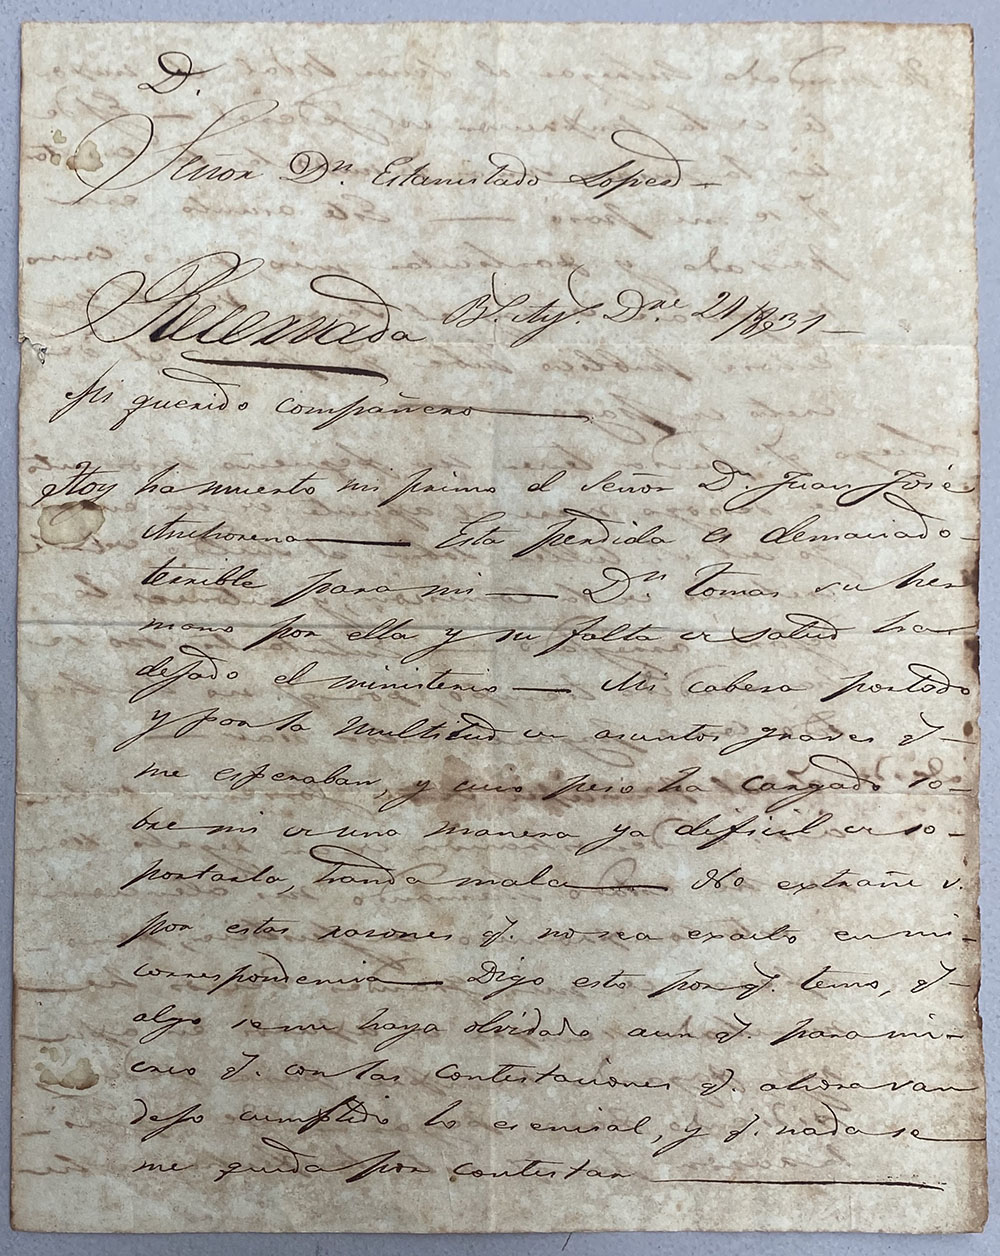 D.
Señor Dn. Estanislado Lopez
Reservada Bs. Ays. Dne 21/831
Mi querido compañero
Hoy ha muerto mi primo el Señor Dn. Juan José
Anchorena — Esta perdida es demaciado
terrible para mi — Dn. Tomas su her
mano por ella y su falta de salud ha
dejado el ministerio — Mi cabesa por todo
y por la multitud de asuntos graves q.
me esperaban, y cuio peso ha cargado so-
bre mi de una manera ya dificil de so-
portarla, handa mala — No extrañe V.
por estas rasones q. no sea exacto en mi
correspondencia — Digo esto por q. temo, q.
algo se me haya olvidado aun q. para mi
creo q. con las contestaciones q. ahora van
dejo cumplido lo esencial, y q. nada se
me queda por contestar